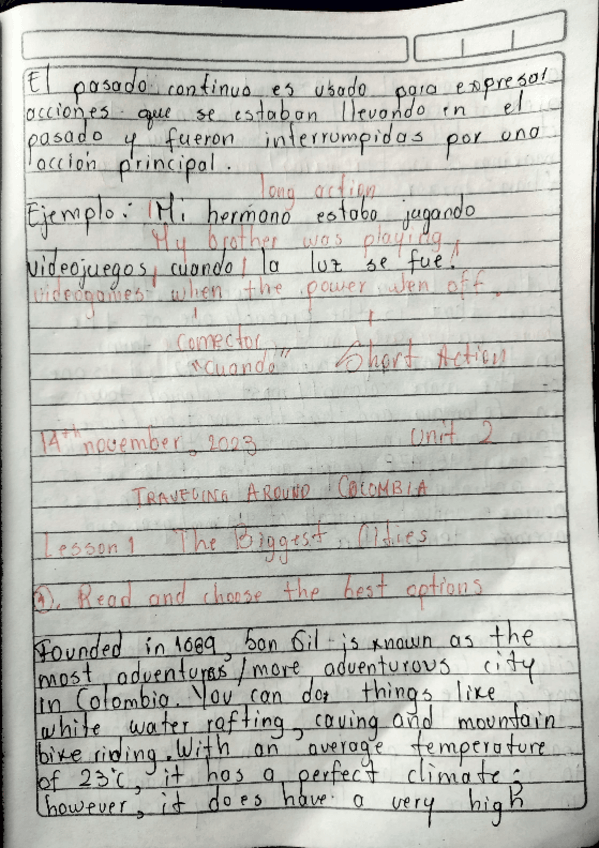 El pasado continuo es usado para expresar
acciones que se estaban llevando en el
pasado y fueron interrumpidas por una
acción principal.
long action
Ejemplo: Mi hermano estaba jugando
My brother was playing,
videojuegos, cuando la luz se fue.
videogames when the power wen off.
comector
"cuando" Short Action
14th november, 2023 Unit 2
TRAVELING AROUND COLOMBIA
Lesson 1 The Biggest, Cities
1). Read and choose the best options
Founded in 1689, San Gil is known as the
most adventures/more adventurous city
in Colombia. You can do, things like
white water rafting, caving and mountain
bike riding. With an average temperature
of 23°c, it has a perfect climate;
however, it does have a very high